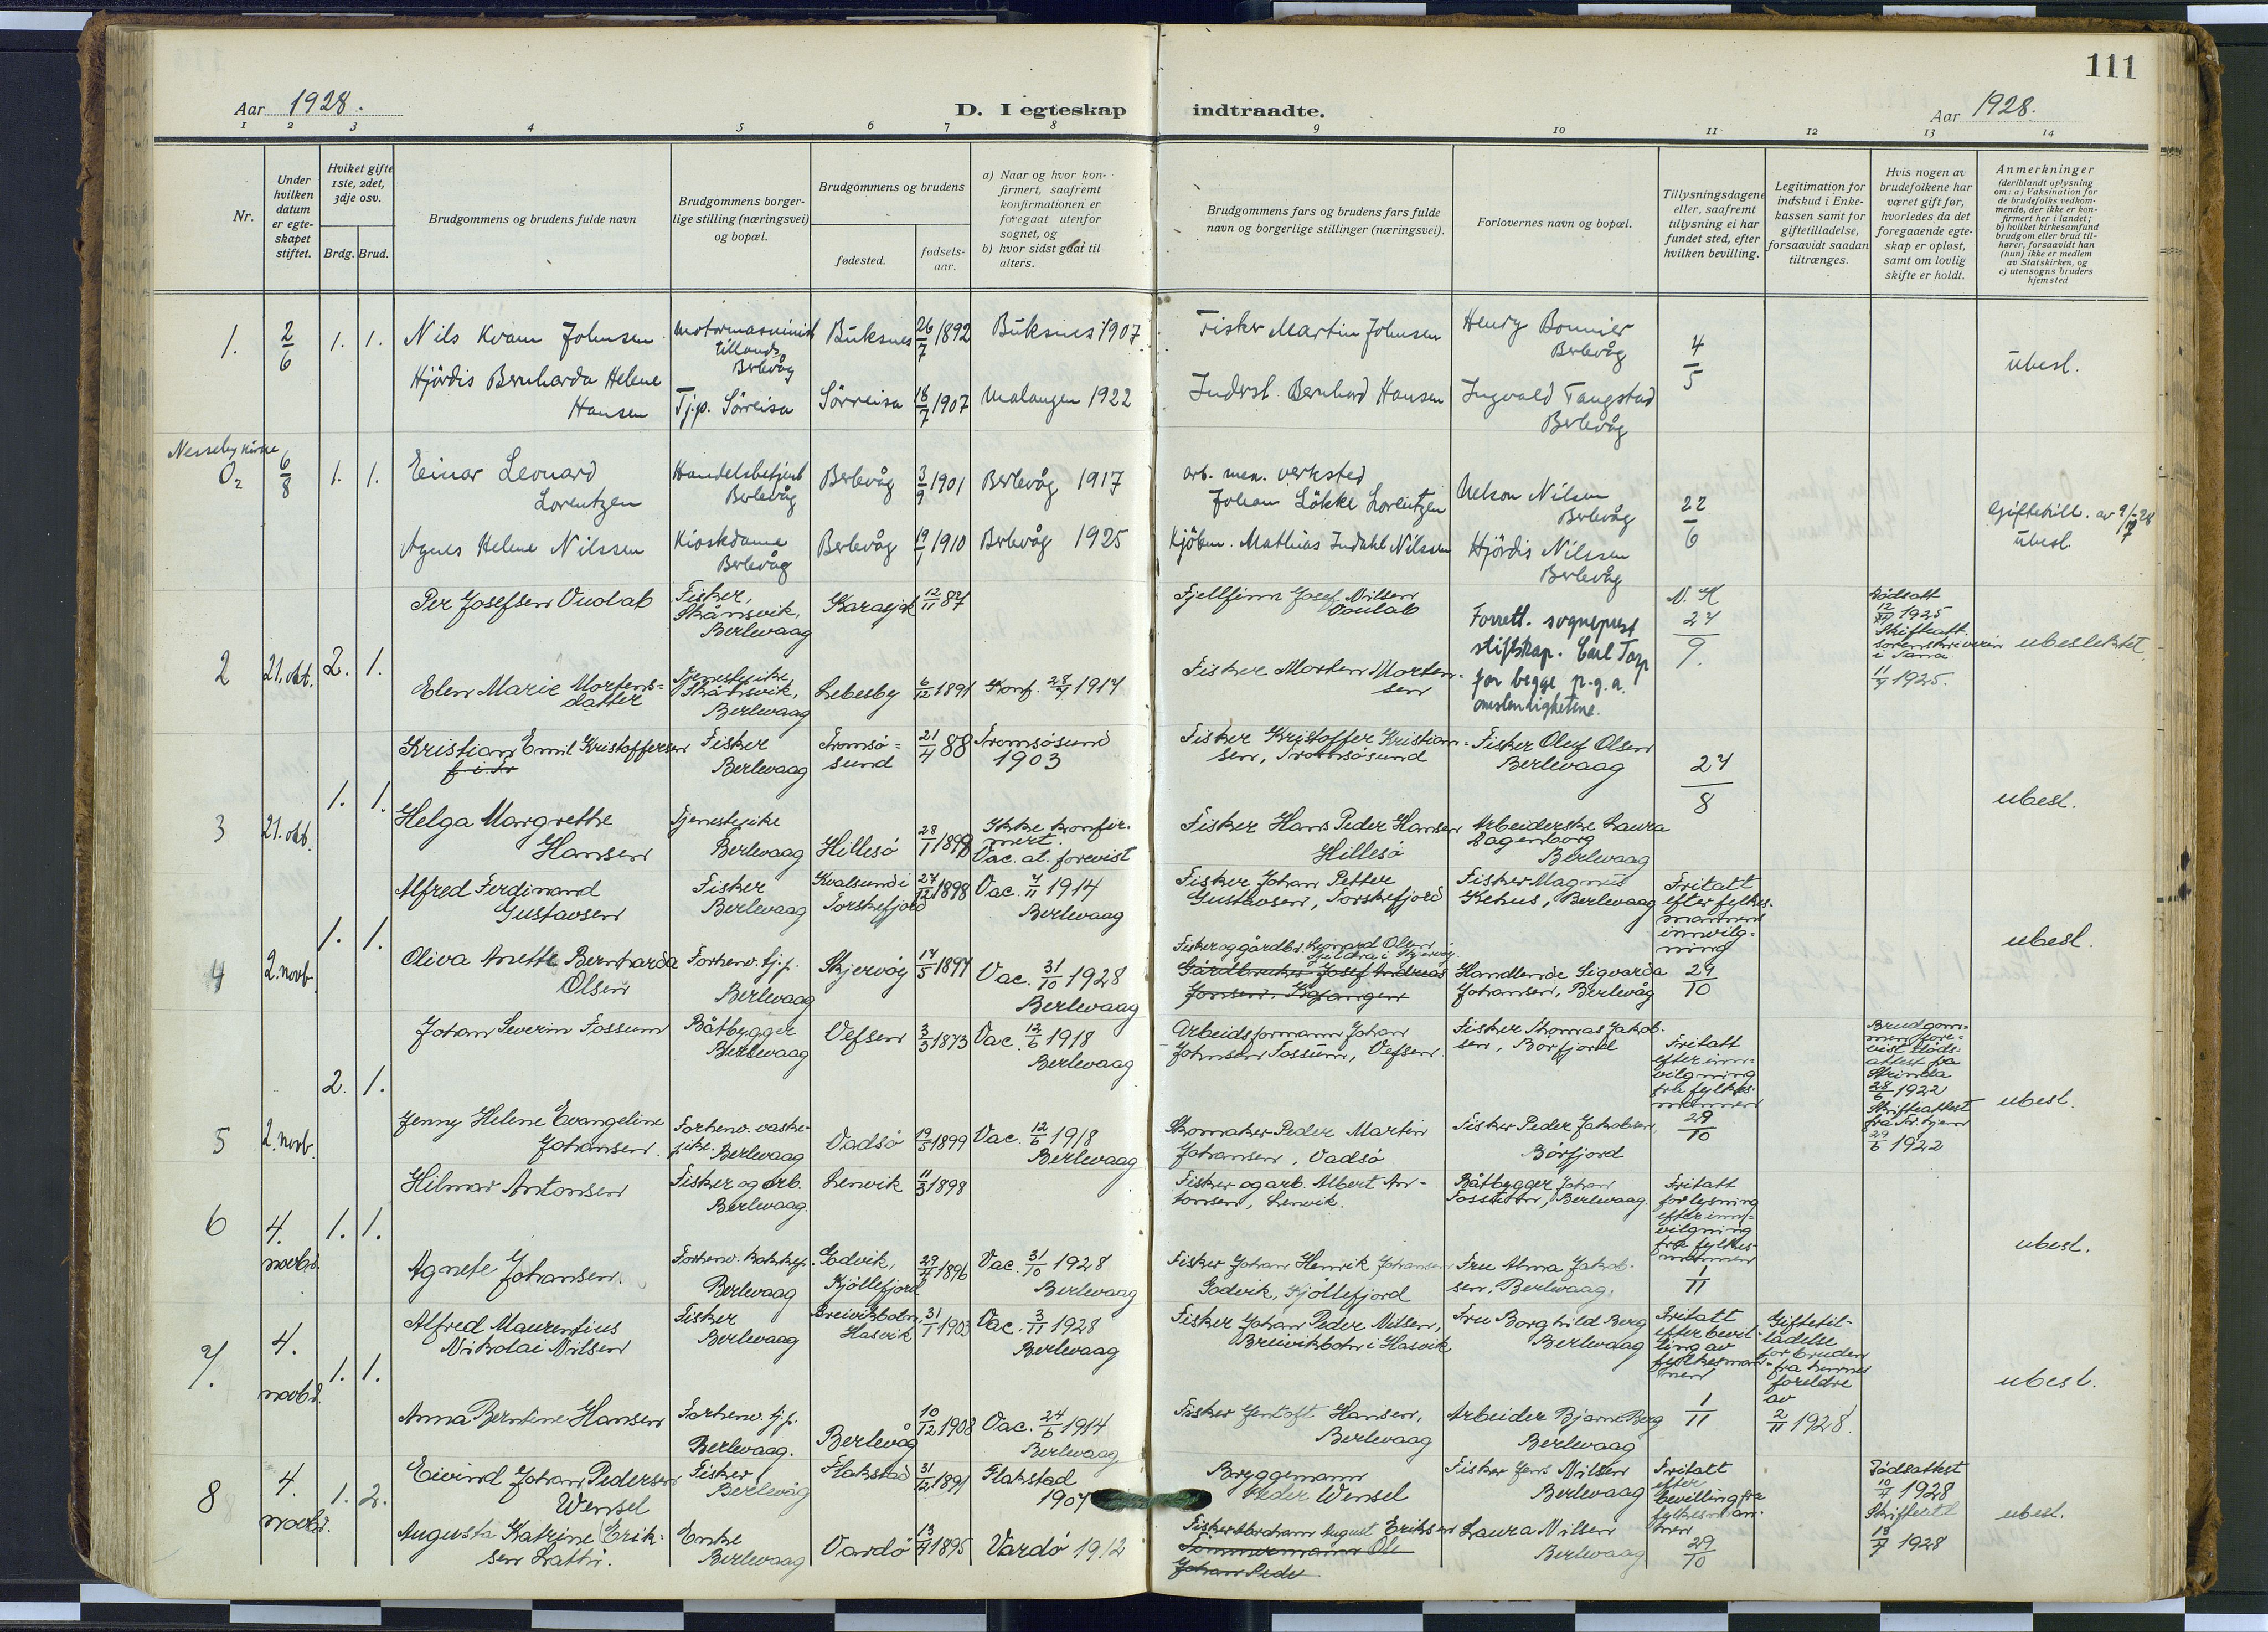 111
Aar 1928.
D. I egteskap indtraadte.
Aar 1928.
1 2 3 4 5 6 7 8 9 10 11 12 13 14
Nr.
Under hvilken datum er egteskapet stiftet.
Hviket gifte 1ste, 2det, 3dje osv.
Brdg. Brud.
Brudgommens og brudens fulde navn
Brudgommens borgerlige stilling (næringsvei) og bopæl.
Brudgommens og brudens
fødested.
fødselsaar.
a) Naar og hvor konfirmert, saafremt konfirmationen er foregaat utenfor sognet, og
b) hvor sidst gaat til alters.
Brudgommens fars og brudens fars fulde navn og borgerlige stillinger (næringsvei).
Forlovernes navn og bopæl.
Tillysningsdagene eller, saafremt tillysning ei har fundet sted, efter hvilken bevilling.
Legitimation for indskud i Enkekassen samt for giftetilladelse, forsaavidt saadan tiltrænges.
Hvis nogen av brudefolkene har været gift før, hvorledes da det foregaaende egteskap er opløst, samt om lovlig skifte er holdt.
Anmerkninger
(deriblandt oplysning om: a) Vaksination for de brudefolks vedkommende, der ikke er konfirmert her i landet; b) hvilket kirkesamfund brudgom eller brud tilhører, forsaavidt han (hun) ikke er medlem av Statskirken, og c) utensogns bruders hjemsted
1. 2/6 1. 1. Nils Kvam Johnsen motormaskinist tillands Berlevåg Buksnes 26/7 1892 Buksnes 1907 Fisker Martin Johnsen Henry Bonnier Berlevåg 4/5 ubesl.
Hjördis Bernharda Helene Hansen Tjp. Sörreisa Sörreisa 18/7 1907 Malangen 1922 Inderst. Bernhard Hansen Ingvald Tangstad Berlevåg
Nesseby kirke
O2 6/8 1. 1. Einar Leonard Lorentzen Handelsbetjent Berlevåg Berlevåg 3/9 1901 Berlevåg 1917 arb. mek. verksted Johan Lökke Lorentzen Nelson Nilsen Berlevåg 22/6 Giftetill. av 9/7-28 ubesl.
Agnes Helene Nilssen Kioskdame Berlevåg Berlevåg 19/1 1910 Berlevåg 1925 Kjöbm. Mathias Indahl Nilssen Hjördis Nilssen Berlevåg
2 21. okt. 2. 1. Per Josefsen Vuolab Fisker, Skånsvik, Berlevaag Karasjok 12/11 87 Fjellfinn Josef Nilsen Voulab Forrett. sogneprest stiftskap. Carl Torp for begge p.g.a. omstendighetene. N. K 27/9. Dödsatt 12/ 1925 Skifteatt. sorenskriveren i Tana 11/7 1925. ubeslektet
Elen Marie Mortensdatter Tjenestepike, Skånsvik, Berlevaag Lebesby 6/12 1891 Konf. 28/7 1914 Fisker Morten Mortensen
3 21. okt. 1. 1. Kristian Emil Kristoffersen f. i. Tr Fisker Berlevaag Tromsøsund 21/4 88 Tromsøsund 1903 Fisker Kristoffer Kristiansen, Tromsøsund Fisker Oluf Olsen Berlevaag 27/8 ubesl.
Helga Margrethe Hansen Tjenestepike Berlevaag Hillesö 28/1 1898 Ikke konfirmert. Vac. at. forevist Fisker Hans Peder Hansen Hillesö Arbeiderske Laura Dagenborg Berlevaag
4 2. novb. 1. 1. Alfred Ferdinand Gustavsen Fisker Berlevaag Kvalsund i Torskefjord 27/12 1898 Vac. 7/11 1914 Berlevaag Fisker Johan Petter Gustavsen, Torskefjord Fisker Magnus Kehus, Berlevaag Fritatt efter fylkesmannens innvilgning 29/10 ubesl.
Oliva Anette Bernharda Olsen Forhenv. tj.p. Berlevaag Skjervöy 14/5 1897 Vac. 31/10 1928 Berlevaag Fisker og gårdbr. Leonard Olsen, i Skjervöy Gårdbruker Josef Andreas Jonsen, Kvænangen Handlende Sigvarda Johansen, Berlevåg
5 2. novb. 2. 1. Johan Severin Fossum Båtbygger Berlevaag Vefsen 3/3 1873 Vac. 12/6 1918 Berlevaag Arbeidsformann Johan Johnsen Fossum, Vefsen. Fisker Thomas Jakobsen, Borfjord Fritatt efter innvilgning fra fylkesmannen 29/10 Brudgommen forevist dödsattest fra Strinda 28/6 1922 Skifteattest fra Tr.hjem 29/6 1922 ubesl.
Jenny Helene Evangeline Johansen. Forhenv. vaskepike. Berlevaag Vadsö 19/5 1899 Vac. 12/6 1918 Berlevaag Skomaker Peder Martin Johansen, Vadsö Fisker Peder Jakobsen, Börfjord
6 4. novbr. 1. 1. Hilmar Antonsen Fisker og arb. Berlevaag. Lenvik 11/3 1898 Fisker og arb. Albert Antonsen, Lenvik. Båtbygger Johan Fossum, Berlevaag. Fritatt for lysning efter innvilgning fra fylkesmannen 1/11 ubesl.
Agnete Johansen. Forhenv. kokkep. Berlevaag Godvik, Kjöllefjord 29/4 1896 Vac. 31/10 1928 Berlevaag Fisker Johan Henrik Johansen Godvik, Kjöllefjord Fru Alma Jakobsen, Berlevaag.
7. 4. novbr. 1. 1. Alfred Maurentius Nikolai Nilsen Fisker Berlevaag Breivikbotn, Hasvik 31/1 1903 Vac. 3/11 1928 Berlevaag Fisker Johan Peder Nilsen, Breivikbotn i Hasvik Fru Borghild Berg Berlevaag Fritatt efter bevilling av fylkesmannen 1/11 Giftetilladelse for bruden fra hennes foreldre av 2/11 1928. ubesl.
Anna Berntine Hansen Forhenv. tj.p. Berlevaag. Berlevåg 10/12 1908 Vac. 24/6 1914 Berlevaag Fisker Jentoft Hansen, Berlevaag Arbeider Bjarne Berg Berlevaag
8 4. novbr. 1. 2. Eivind Johan Pedersen Wensel Fisker Berlevåg Flakstad 31/12 1891 Flakstad 1907 Bryggemann Peder Wensel Fisker Jens Nilsen Berlevaag Fritatt efter bevilling fra fylkesmannen 29/10 Dödsattest 10/4 1928 Skifteatt 13/7 1928 ubesl.
Augusta Katrine Eriksen Lathi. Enke Berlevaag Vardö 13/7 1895 Vardö 1912 Fisker Abraham August Eriksen Tömmermann Ole Johan Peder Laura Nilsen Berlevaag